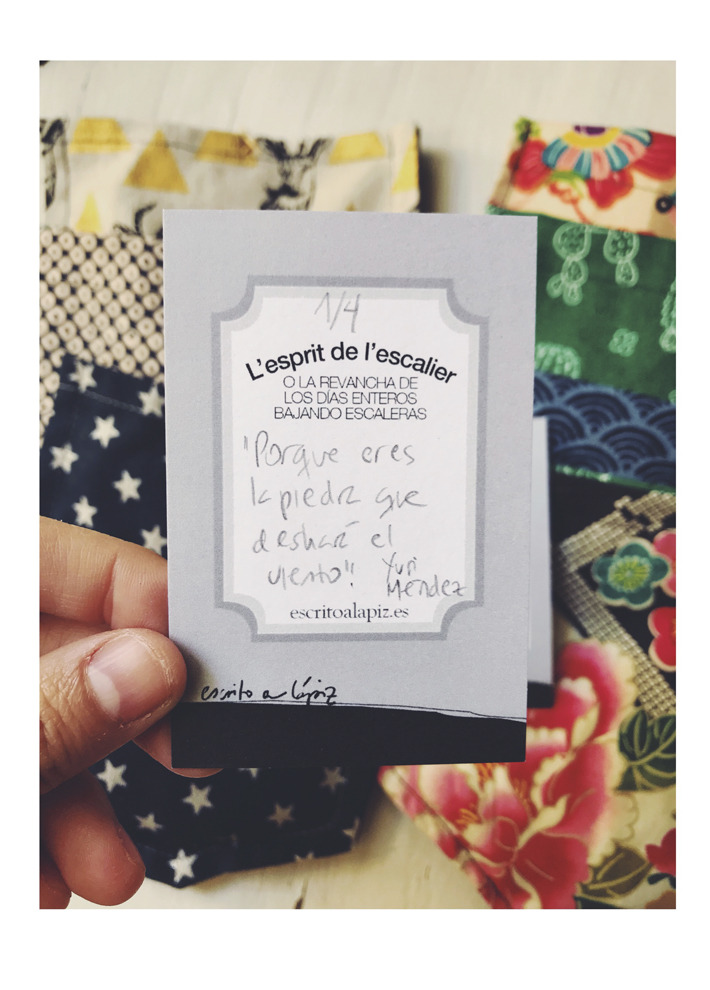 1/4
L'esprit de l'escalier
O LA REVANCHA DE
LOS DÍAS ENTEROS
BAJANDO ESCALERAS
"Porque eres
la piedra que
deshará el
viento".
Yuri
Méndez
escritoalapiz.es
escrito a lápiz